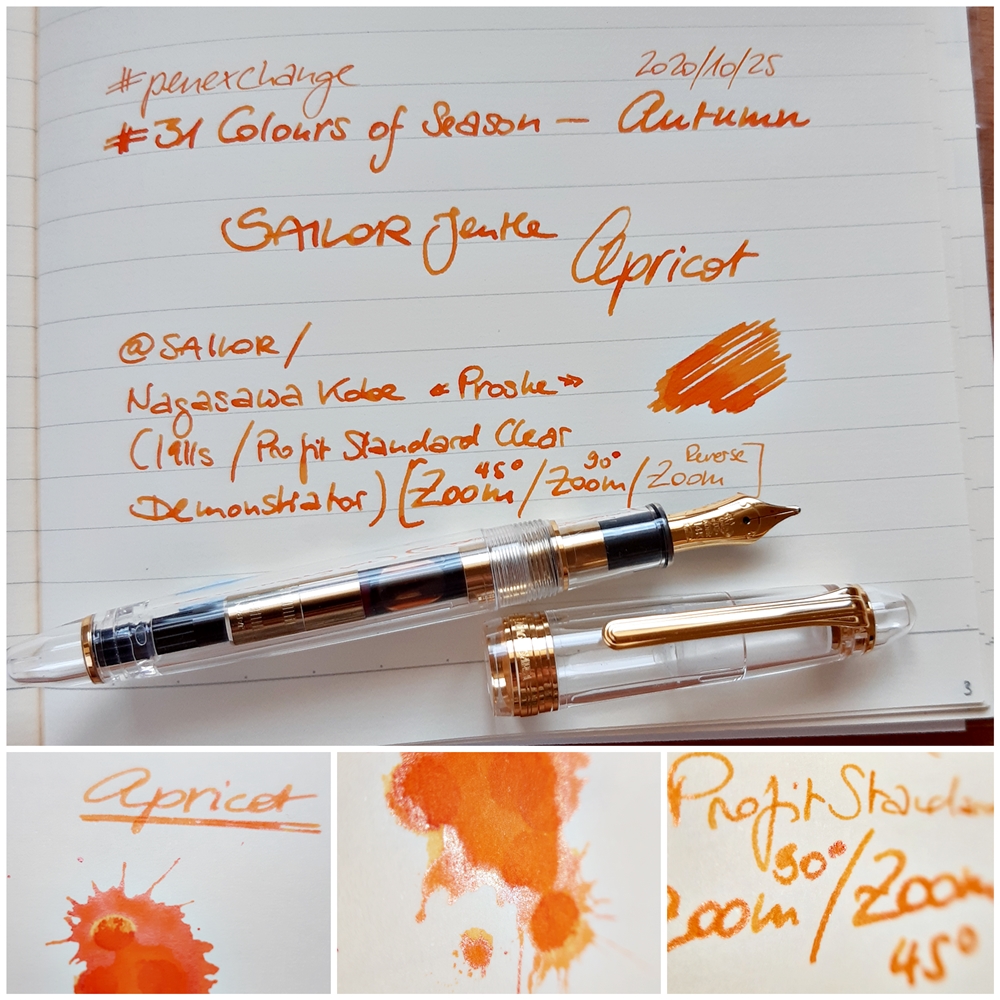 #penexchange 2020/10/25
#31 Colours of Season - Autumn
SAILOR Jentle Apricot
@SAILOR/
Nagasawa Kobe "Proske"
(1911s / Profit Standard Clear
Demonstrator) [Zoom 45° / Zoom 90° / Zoom Reverse]
3
Apricot
Profit Standar
90°
Zoom / Zoom
45°